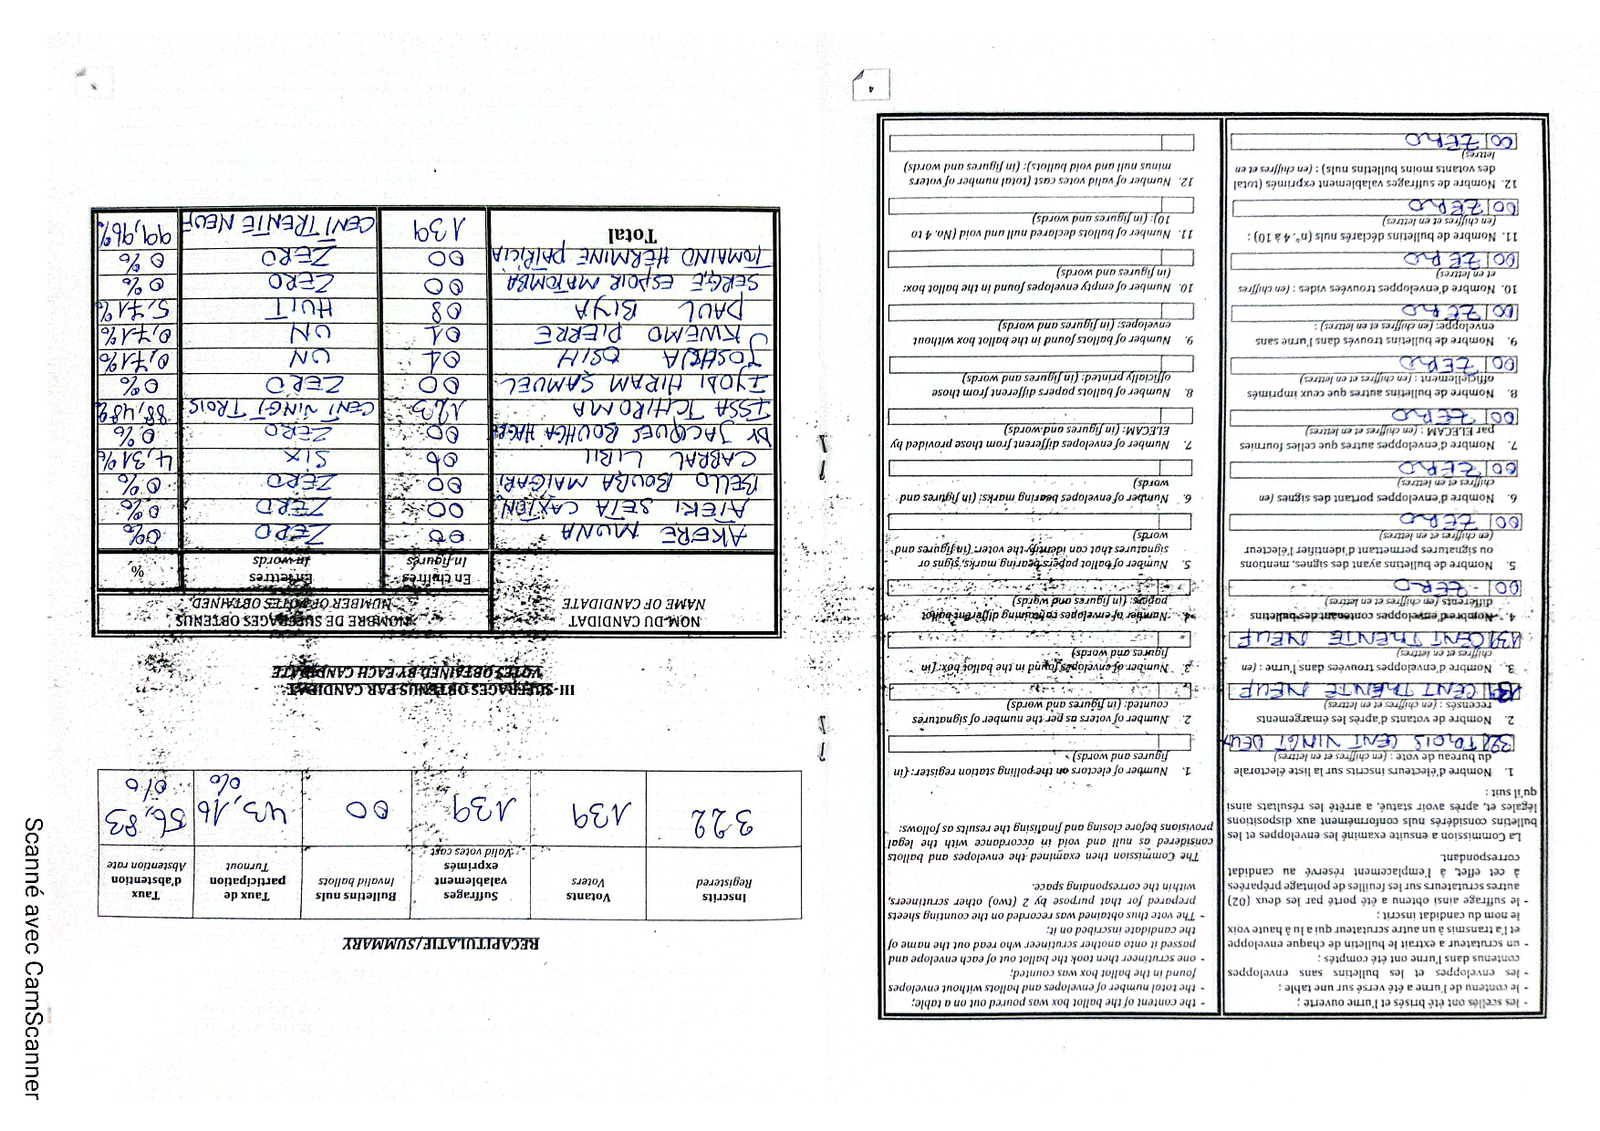 4
- les scellés ont été brisés et l'urne ouverte ;
- le contenu de l'urne a été versé sur une table :
- les enveloppes et les bulletins sans enveloppes
contenus dans l'urne ont été comptés ;
- un scrutateur a extrait le bulletin de chaque enveloppe
et l'a transmis à un autre scrutateur qui a lu à haute voix
le nom du candidat inscrit ;
- le suffrage ainsi obtenu a été porté par les deux (02)
autres scrutateurs sur les feuilles de pointage préparées
à cet effet, à l'emplacement réservé au candidat
correspondant.
La Commission a ensuite examiné les enveloppes et les
bulletins considérés nuls conformément aux dispositions
légales et, après avoir statué, a arrêté les résultats ainsi
qu'il suit :
1. Nombre d'électeurs inscrits sur la liste électorale
du bureau de vote : (en chiffres et en lettres)
322 TROIS CENT VINGT DEUX
2. Nombre de votants d'après les émargements
recensés : (en chiffres et en lettres)
139 CENT TRENTE NEUF
3. Nombre d'enveloppes trouvées dans l'urne : (en
chiffres et en lettres)
139 CENT TRENTE NEUF
4. Nombre d'enveloppes contenant des bulletins
différents (en chiffres et en lettres)
00 ZERO
5. Nombre de bulletins ayant des signes, mentions
ou signatures permettant d'identifier l'électeur
(en chiffres et en lettres)
00 ZERO
6. Nombre d'enveloppes portant des signes (en
chiffres et en lettres)
00 ZERO
7. Nombre d'enveloppes autres que celles fournies
par ELECAM : (en chiffres et en lettres)
00 ZERO
8. Nombre de bulletins autres que ceux imprimés
officiellement : (en chiffres et en lettres)
00 ZERO
9. Nombre de bulletins trouvés dans l'urne sans
enveloppe: (en chiffres et en lettres) :
00 ZERO
10. Nombre d'enveloppes trouvées vides : (en chiffres
et en lettres)
00 ZERO
11. Nombre de bulletins déclarés nuls (n°. 4 à 10) :
(en chiffres et en lettres)
00 ZERO
12. Nombre de suffrages valablement exprimés (total
des votants moins bulletins nuls) : (en chiffres et en
lettres)
00 ZERO
- the content of the ballot box was poured out on a table;
- the total number of envelopes and ballots without envelopes
found in the ballot box was counted;
- one scrutineer then took the ballot out of each envelope and
passed it onto another scrutineer who read out the name of
the candidate inscribed on it;
- The vote thus obtained was recorded on the counting sheets
prepared for that purpose by 2 (two) other scrutineers,
within the corresponding space.
The Commission then examined the envelopes and ballots
considered as null and void in accordance with the legal
provisions before closing and finalising the results as follows:
1. Number of electors on the polling station register: (in
figures and words)
2. Number of voters as per the number of signatures
counted: (in figures and words)
3. Number of envelopes found in the ballot box: (in
figures and words)
4. Number of envelopes containing different ballot
papers: (in figures and words)
5. Number of ballot papers bearing marks, signs or
signatures that can identify the voter: (in figures and
words)
6. Number of envelopes bearing marks: (in figures and
words)
7. Number of envelopes different from those provided by
ELECAM: (in figures and words)
8. Number of ballots papers different from those
officially printed: (in figures and words)
9. Number of ballots found in the ballot box without
envelopes: (in figures and words)
10. Number of empty envelopes found in the ballot box:
(in figures and words)
11. Number of ballots declared null and void (No. 4 to
10): (in figures and words)
12. Number of valid votes cast (total number of voters
minus null and void ballots): (in figures and words)
RECAPITULATIF/SUMMARY
Inscrits Registered | Votants Voters | Suffrages valablement exprimés Valid votes cast | Bulletins nuls Invalid ballots | Taux de participation Turnout | Taux d'abstention Abstention rate
322 | 139 | 139 | 00 | 43,16 % | 56,83 %
III- SUFFRAGES OBTENUS PAR CANDIDAT
VOTES OBTAINED BY EACH CANDIDATE
NOM DU CANDIDAT | NOMBRE DE SUFFRAGES OBTENUS
NAME OF CANDIDATE | NUMBER OF VOTES OBTAINED
En chiffres | En lettres | %
In figures | In words
AKERE MUNA | 00 | ZERO | 0%
ATEKI SETA CAXTON | 00 | ZERO | 0%
BELLO BOUBA MAIGARI | 00 | ZERO | 0%
CABRAL LIBII | 06 | SIX | 4,31%
DR JACQUES BOUHGA HAGBE | 00 | ZERO | 0%
ISSA TCHIROMA | 123 | CENT VINGT TROIS | 88,48%
IYODI HIRAM SAMUEL | 00 | ZERO | 0%
JOSHUA OSIH | 01 | UN | 0,71%
KWEMO PIERRE | 01 | UN | 0,71%
PAUL BIYA | 08 | HUIT | 5,71%
SERGE ESPOIR MATOMBA | 00 | ZERO | 0%
TOMAINO HERMINE PATRICIA | 00 | ZERO | 0%
Total | 139 | CENT TRENTE NEUF | 99,96%
Scanné avec CamScanner